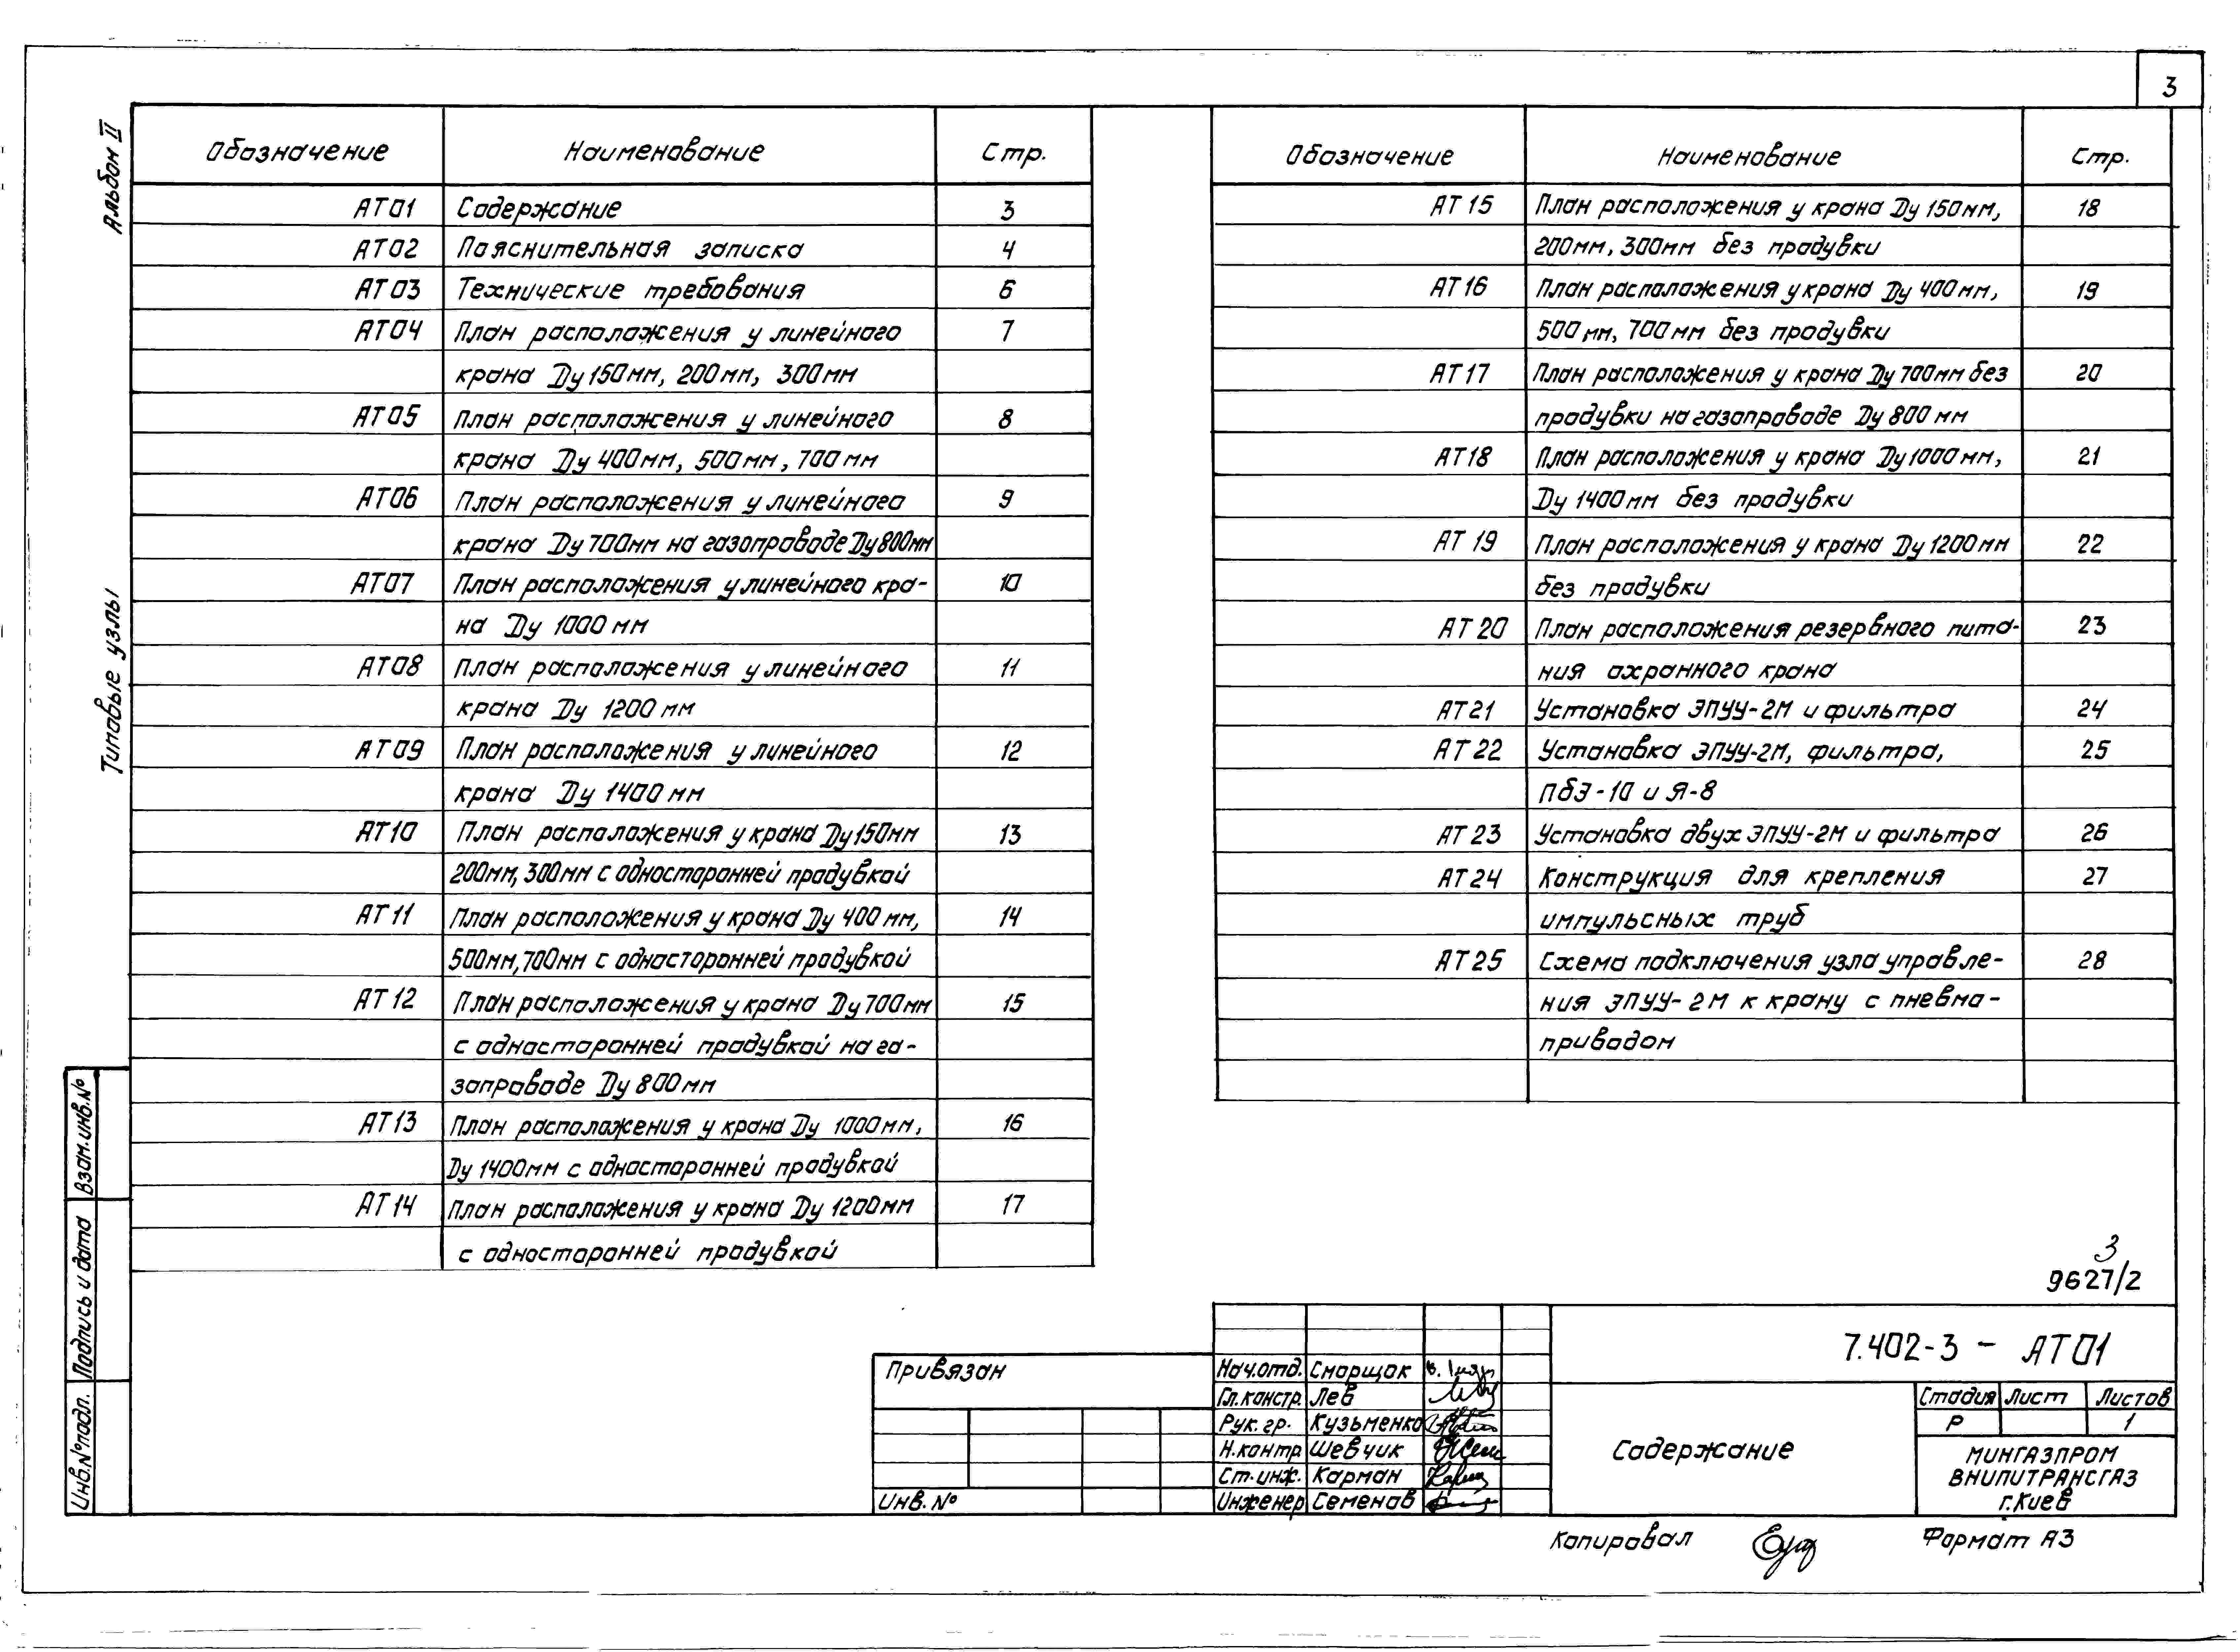 3
Альбом II
Типовые узлы
Обозначение Наименование Стр.
АТ01 Содержание 3
АТ02 Пояснительная записка 4
АТ03 Технические требования 6
АТ04 План расположения у линейного 7
крана Ду 150мм, 200мм, 300мм
АТ05 План расположения у линейного 8
крана Ду 400мм, 500мм, 700мм
АТ06 План расположения у линейного 9
крана Ду 700мм на газопроводе Ду 800мм
АТ07 План расположения у линейного кра- 10
на Ду 1000 мм
АТ08 План расположения у линейного 11
крана Ду 1200 мм
АТ09 План расположения у линейного 12
крана Ду 1400 мм
АТ10 План расположения у крана Ду 150мм 13
200мм, 300мм с односторонней продувкой
АТ11 План расположения у крана Ду 400 мм, 14
500мм, 700мм с односторонней продувкой
АТ12 План расположения у крана Ду 700мм 15
с односторонней продувкой на га-
зопроводе Ду 800мм
АТ13 План расположения у крана Ду 1000мм, 16
Ду 1400мм с односторонней продувкой
АТ14 План расположения у крана Ду 1200мм 17
с односторонней продувкой
Обозначение Наименование Стр.
АТ15 План расположения у крана Ду 150мм, 18
200мм, 300мм без продувки
АТ16 План расположения у крана Ду 400мм, 19
500мм, 700мм без продувки
АТ17 План расположения у крана Ду 700мм без 20
продувки на газопроводе Ду 800 мм
АТ18 План расположения у крана Ду 1000мм, 21
Ду 1400мм без продувки
АТ19 План расположения у крана Ду 1200мм 22
без продувки
АТ20 План расположения резервного пита- 23
ния охранного крана
АТ21 Установка ЭПУУ-2М и фильтра 24
АТ22 Установка ЭПУУ-2М, фильтра, 25
ПБЭ-10 и Я-8
АТ23 Установка двух ЭПУУ-2М и фильтра 26
АТ24 Конструкция для крепления 27
импульсных труб
АТ25 Схема подключения узла управле- 28
ния ЭПУУ-2М к крану с пневмо-
приводом
Взам.инв.№
Подпись и дата
Инв.№подл.
3
9627/2
Привязан
Инв.№
Нач.отд. Сморщок
Гл.констр. Лев
Рук.гр. Кузьменко
Н.контр Шевчик
Ст.инж. Карман
Инженер Семенов
7.402-3 - АТ01
Содержание
Стадия Лист Листов
Р 1
МИНГАЗПРОМ
ВНИПИТРАНСГАЗ
г.Киев
Копировал
Формат А3